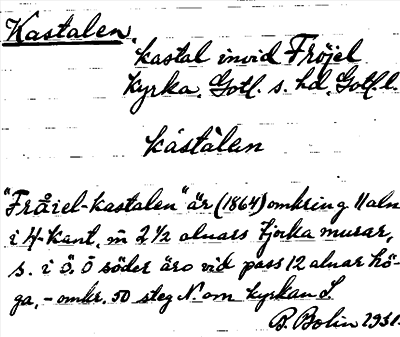 Kastalen.
kastal invid Fröjel
kyrka, Gotl. s. hd, Gotl. l.
kástàlen
"Fråiel-kastalen" är (1864) omkring 11 aln
i 4-kant, m̄ 2 1/2 alnars tjocka murar,
s. i ö. o söder äro vid pass 12 alnar hö-
ga, - omkr. 50 steg N. om kyrkan S.
B. Bolin 1931.